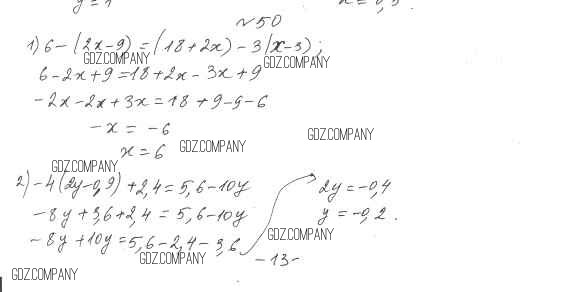 y = 1
№50
1) 6 - (2x - 9) = (18 + 2x) - 3(x - 3);
6 - 2x + 9 = 18 + 2x - 3x + 9
-2x - 2x + 3x = 18 + 9 - 9 - 6
-x = -6
x = 6
2) -4(2y - 0,9) + 2,4 = 5,6 - 10y
-8y + 3,6 + 2,4 = 5,6 - 10y
-8y + 10y = 5,6 - 2,4 - 3,6
2y = -0,4
y = -0,2.
-13-
GDZ.COMPANY
GDZ.COMPANY
GDZ.COMPANY
GDZ.COMPANY
GDZ.COMPANY
GDZ.COMPANY
GDZ.COMPANY
GDZ.COMPANY